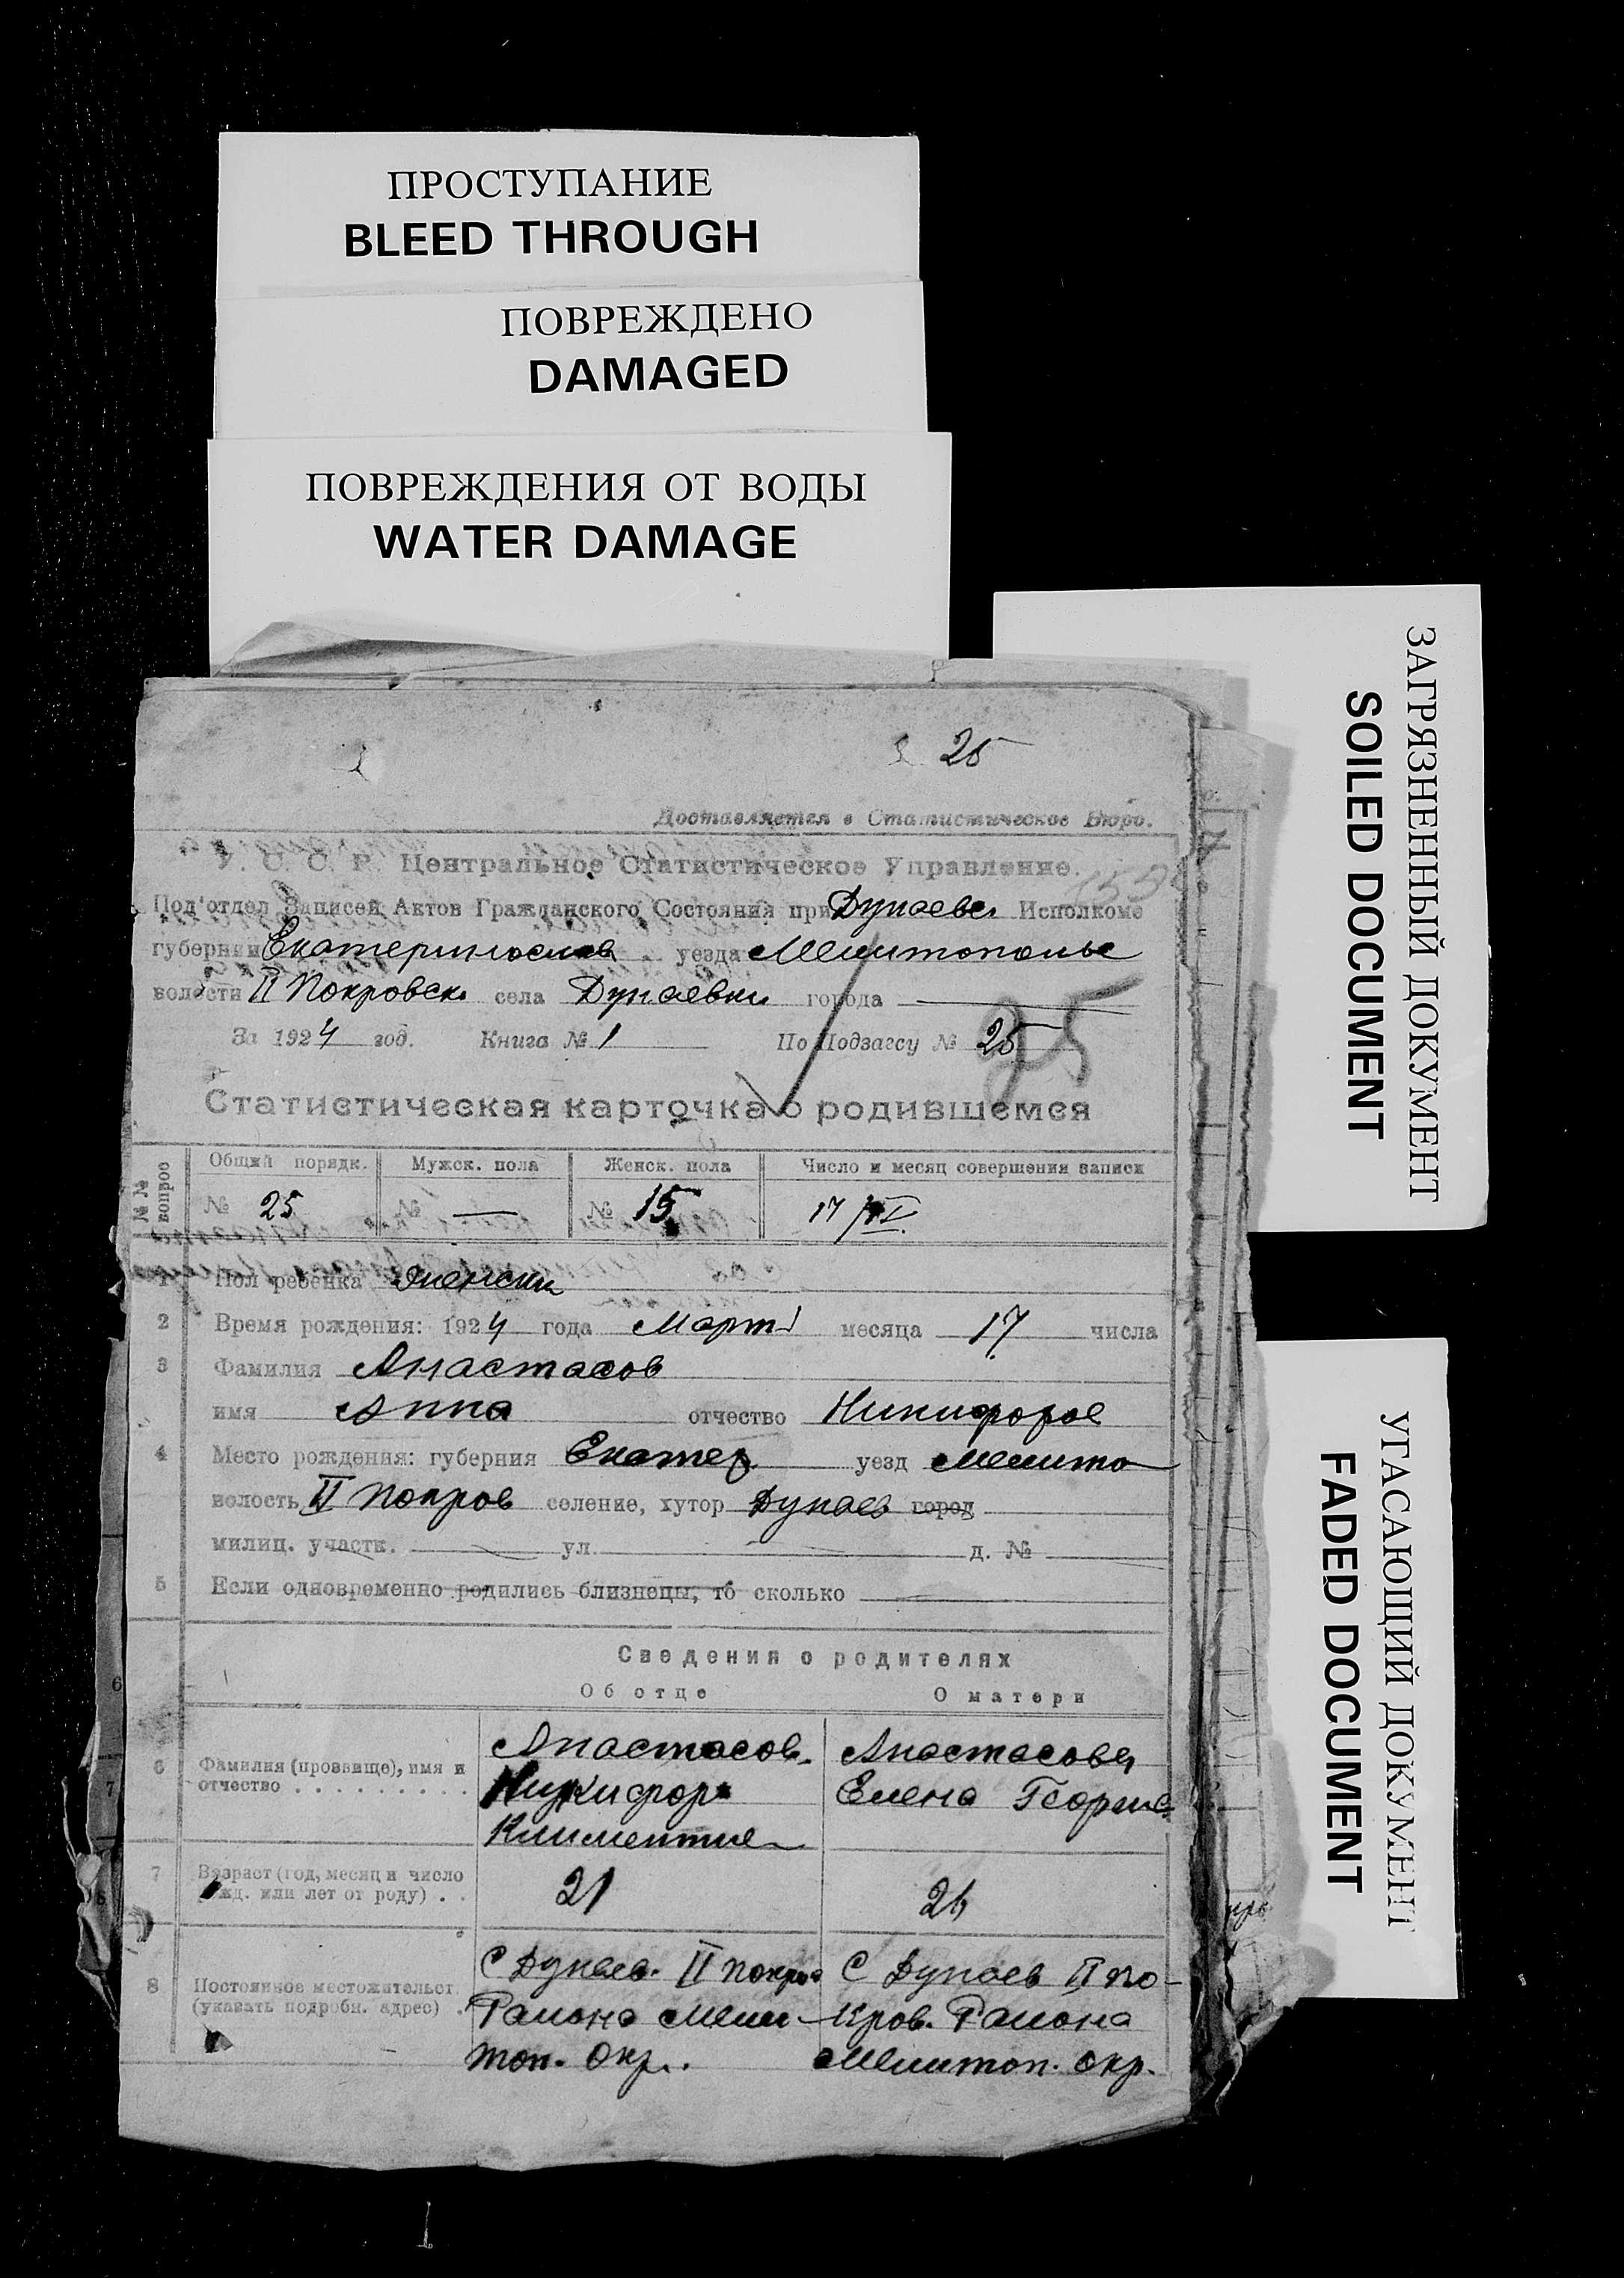 ПРОСТУПАНИЕ
BLEED THROUGH
ПОВРЕЖДЕНО
DAMAGED
ПОВРЕЖДЕНИЯ ОТ ВОДЫ
WATER DAMAGE
ЗАГРЯЗНЕННЫЙ ДОКУМЕНТ
SOILED DOCUMENT
УГАСАЮЩИЙ ДОКУМЕНТ
FADED DOCUMENT
25
Доставляется в Статистическое Бюро.
У. С. С. Р. Центральное Статистическое Управление.
Под'отдел Записей Актов Гражданского Состояния при Дунаевс. Исполкоме
губернии Екатеринослав уезда Мелитополье
волости II Покровск. села Дунаевки города
За 1924 год. Книга № 1 По Подзагсу № 25
25
Статистическая карточка о родившемся
№ № вопрос Общий порядк. Мужск. пола Женск. пола Число и месяц совершения записи
№ 25 № — № 15 17/IV
1 Пол ребенка Женски
2 Время рождения: 1924 года Март месяца 17 числа
3 Фамилия Анастасов
имя Анна отчество Никифоров
4 Место рождения: губерния Екатер. уезд Мелито
волость II Покров селение, хутор Дунаев город
милиц. участк. ул. д. №
5 Если одновременно родились близнецы, то сколько
Сведения о родителях
Об отце О матери
6 Фамилия (прозвище), имя и отчество Анастасов. Анастасова
Никифор Елена Георгие
Климентие
7 Возраст (год, месяц и число рожд. или лет от роду) 21 26
8 Постоянное местожительст. (указать подробн. адрес) С Дунаев. II Покров С Дунаев II По-
Раиона Мели- Кров. Раиона
топ. Окр. Мелитоп. Окр.